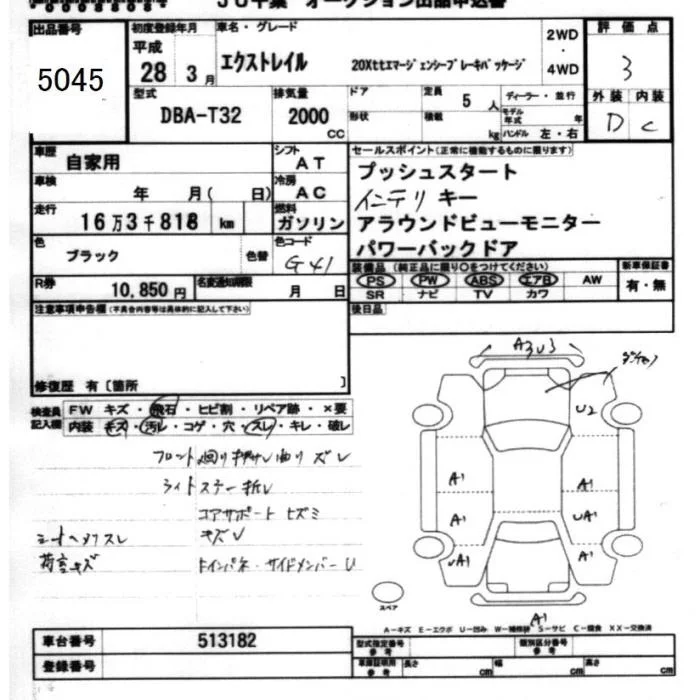 JU千葉 オークション出品申込書
出品番号
5045
初度登録年月
平成
28 3月
車名・グレード
エクストレイル 20Xttエマージェンシーブレーキパッケージ
2WD
・
4WD
評価点
3
外装 内装
D C
型式
DBA-T32
排気量
2000 CC
ドア
形状
定員 5 人
積載 kg
ディーラー・並行
モデル年式 年
ハンドル 左・右
車歴 自家用
シフト AT
車検 年 月( 日)
冷房 AC
走行 16万3千818 km
燃料 ガソリン
色 ブラック 色替
色コード G41
R券 10,850円
名変通知期限 月 日
セールスポイント(正常に機能するものに限ります)
プッシュスタート
インテリキー
アラウンドビューモニター
パワーバックドア
装備品(純正品に限り○をつけてください)
PS PW ABS エアB AW
SR ナビ TV カワ
新車保証書
有・無
注意事項申告欄(不具合内容等は具体的に記入して下さい)
後日品
修復歴 有〔箇所 〕
検査員記入欄
FW キズ・飛石・ヒビ割・リペア跡・×要
内装 キズ・汚レ・コゲ・穴・スレ・キレ・破レ
フロント廻り
ライトステー折レ
コアサポート ヒズミ
キズU
シートヘタリスレ
荷室キズ
トインパネ・サイドメンバーU
A3U3
U2
A1
A1
A1
UA1
UA1
A1
A1
スペア
A-キズ E-エクボ U-凹み W-補修跡 S-サビ C-腐食 XX-交換済
車台番号 513182
登録番号
型式指定番号 参考
類別区分番号 参考
車庫証明用 参考
長さ cm
幅 cm
高さ cm